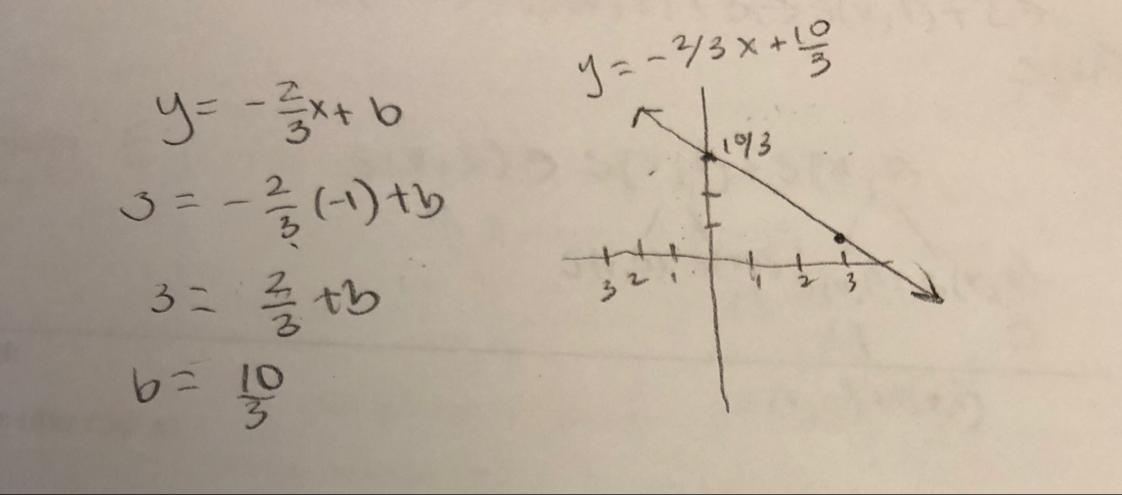 y = -2/3 x + b
3 = -2/3 (-1) + b
3 = 2/3 + b
b = 10/3
y = -2/3 x + 10/3
10/3
3 2 1 1 2 3